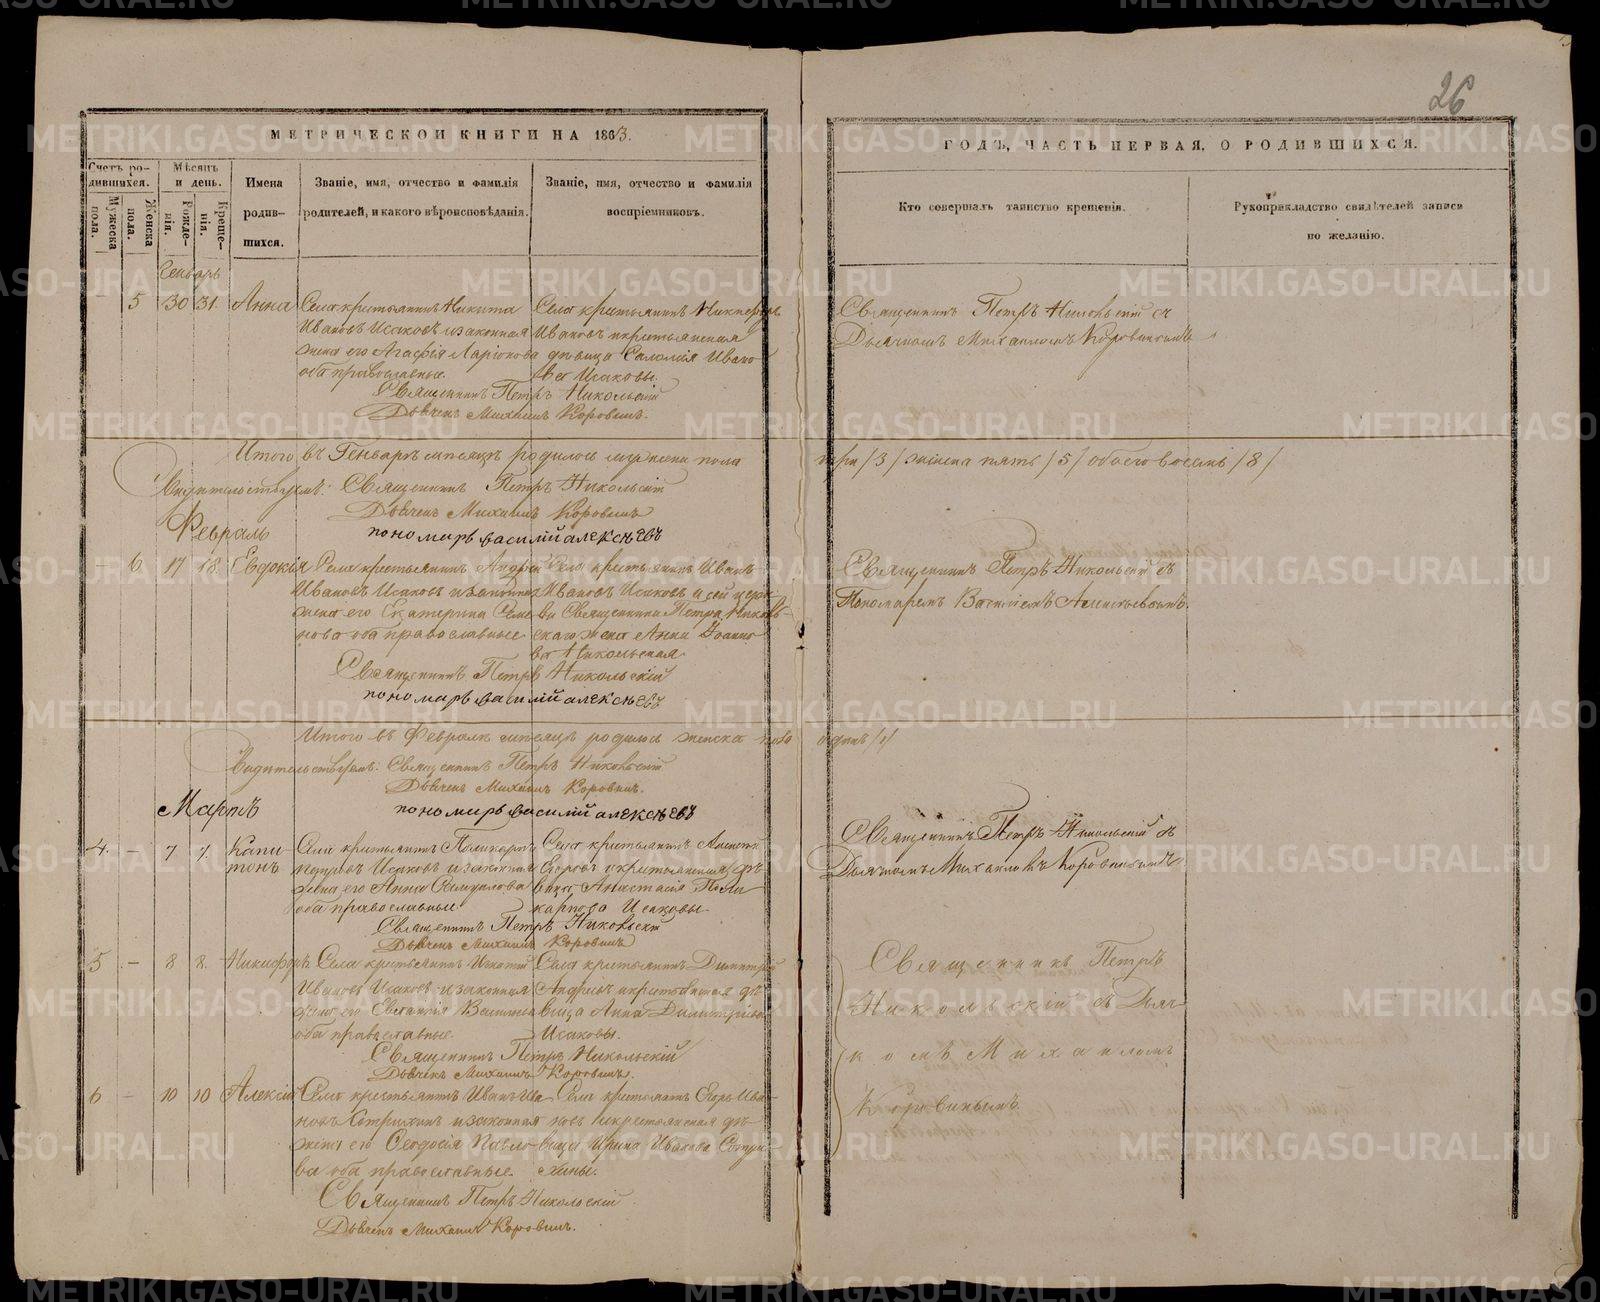 26
МЕТРИЧЕСКОЙ КНИГИ НА 1863.
ГОДЪ, ЧАСТЬ ПЕРВАЯ, О РОДИВШИХСЯ.
Счетъ ро-
дившихся.
Мужеска
пола.
Женска
пола.
Мѣсяцъ
и день.
Рожде-
нія.
Креще-
нія.
Имена
родив-
шихся.
Званіе, имя, отчество и фамилія
родителей, и какого вѣроисповѣданія.
Званіе, имя, отчество и фамилія
воспріемниковъ.
Кто совершалъ таинство крещенія.
Рукоприкладство свидѣтелей записи
по желанію.
Генварь
5 30 31. Анна
Села крестьянинъ Никита
Ивановъ Исаковъ и законная
жена его Агафія Ларіонова
оба православные.
Села крестьянинъ
Ивановъ и крестьянская
дѣвица Саломія Ивано
ва Исаковы.
Священникъ Петръ Никольскій съ
Дьячкомъ Михаиломъ Коровинымъ
Священникъ Петръ Никольскій
Дьячекъ Михаилъ Коровинъ.
Итого въ Генварѣ мѣсяцѣ родилось мужска пола
три /3/ женска пять /5/ обоего восемь /8/
Свидѣтельствуемъ: Священникъ Петръ Никольскій
Дьячекъ Михаилъ Коровинъ
пономарь василій алексѣевъ
Февраль
- 6 17 18. Евдокія
Села крестьянинъ Андрей
Ивановъ Исаковъ и законная
жена его Екатерина Семе
нова оба православные
Села крестьянинъ Иванъ
Ивановъ Исаковъ и сей церк
ви Священника Петра Николь-
скаго жена Анна Іоанно
ва Никольская
Священникъ Петръ Никольскій съ
Пономаремъ Василіемъ Алексѣевымъ.
Священникъ Петръ Никольскій
пономарь василій алексѣевъ
Итого въ Февралѣ мѣсяцѣ родилось женска пола
одинъ /1/
Свидѣтельствуемъ: Священникъ Петръ Никольскій
Дьячекъ Михаилъ Коровинъ.
пономарь василій алексѣевъ
Мартъ
4. - 7 7. Капи
тонъ
Села крестьянинъ Поликарпъ
Петровъ Исаковъ и законная
жена его Анна
оба православные.
Села крестьянинъ Алексѣй
Егоровъ и крестьянская дѣ
вица Анастасія Поли
карпова Исаковы.
Священникъ Петръ Никольскій съ
Дьячкомъ Михаиломъ Коровинымъ
Священникъ Петръ Никольскій
Дьячекъ Михаилъ Коровинъ
5 - 8 8. Никифоръ
Села крестьянинъ Игнатій
Ивановъ Исаковъ и законная
жена его Евгенія Василье
оба православные.
Села крестьянинъ Димитрій
Андреевъ и крестьянская дѣ
вица Анна Димитріева
Исаковы.
Священникъ Петръ
Никольскій съ Дьяч
комъ Михаиломъ
Коровинымъ
Священникъ Петръ Никольскій
Дьячекъ Михаилъ Коровинъ.
6 - 10 10 Алексій
Села крестьянинъ Иванъ Ива
новъ и законная
жена его Ѳеодосія Павло
ва оба православные.
Села крестьянинъ Егоръ Ива
новъ и крестьянская дѣ
вица Ирина Иванова
хины.
Священникъ Петръ Никольскій
Дьячекъ Михаилъ Коровинъ.